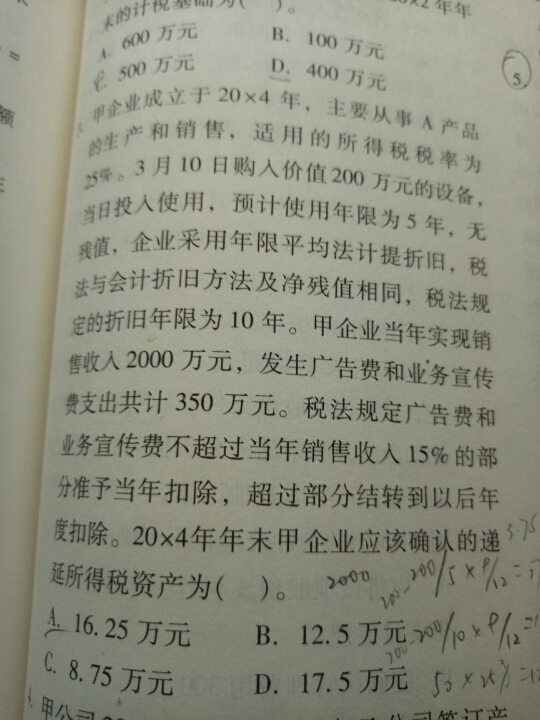 末的计税基础为(  )。
20×2 年年
A. 600 万元 B. 100 万元
C. 500 万元 D. 400 万元
5.
甲企业成立于 20×4 年，主要从事 A 产品
的生产和销售，适用的所得税税率为
25%。3 月 10 日购入价值 200 万元的设备，
当日投入使用，预计使用年限为 5 年，无
残值，企业采用年限平均法计提折旧，税
法与会计折旧方法及净残值相同，税法规
定的折旧年限为 10 年。甲企业当年实现销
售收入 2000 万元，发生广告费和业务宣传
费支出共计 350 万元。税法规定广告费和
业务宣传费不超过当年销售收入 15% 的部
分准予当年扣除，超过部分结转到以后年
度扣除。20×4年年末甲企业应该确认的递
3.75
延所得税资产为(  )。
2000 200-200/5×9/12=
A. 16.25 万元 B. 12.5 万元
200-200/10×9/12=
C. 8.75 万元 D. 17.5 万元
50×25%=
4.
甲公司
公司签订产